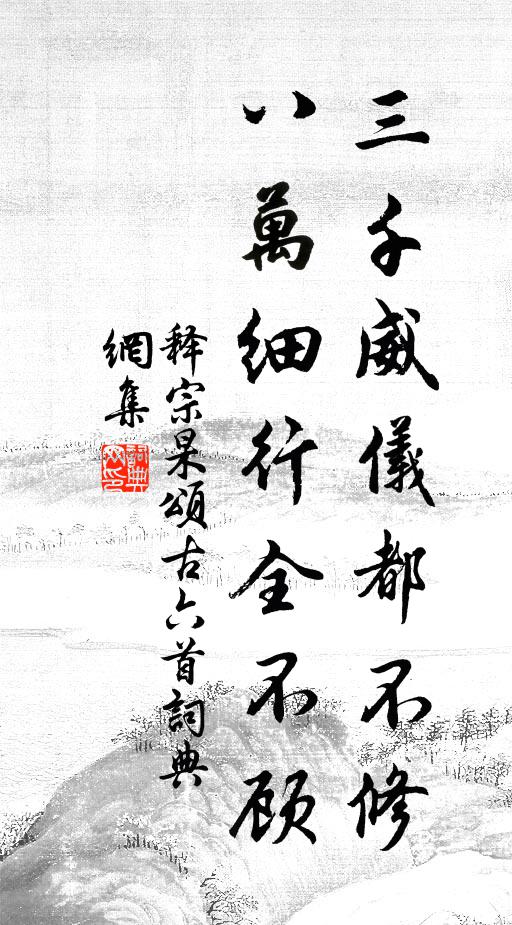 三千威儀都不修
八萬細行全不顾
释宗杲頌古六首詞典
網集
詞典
网印